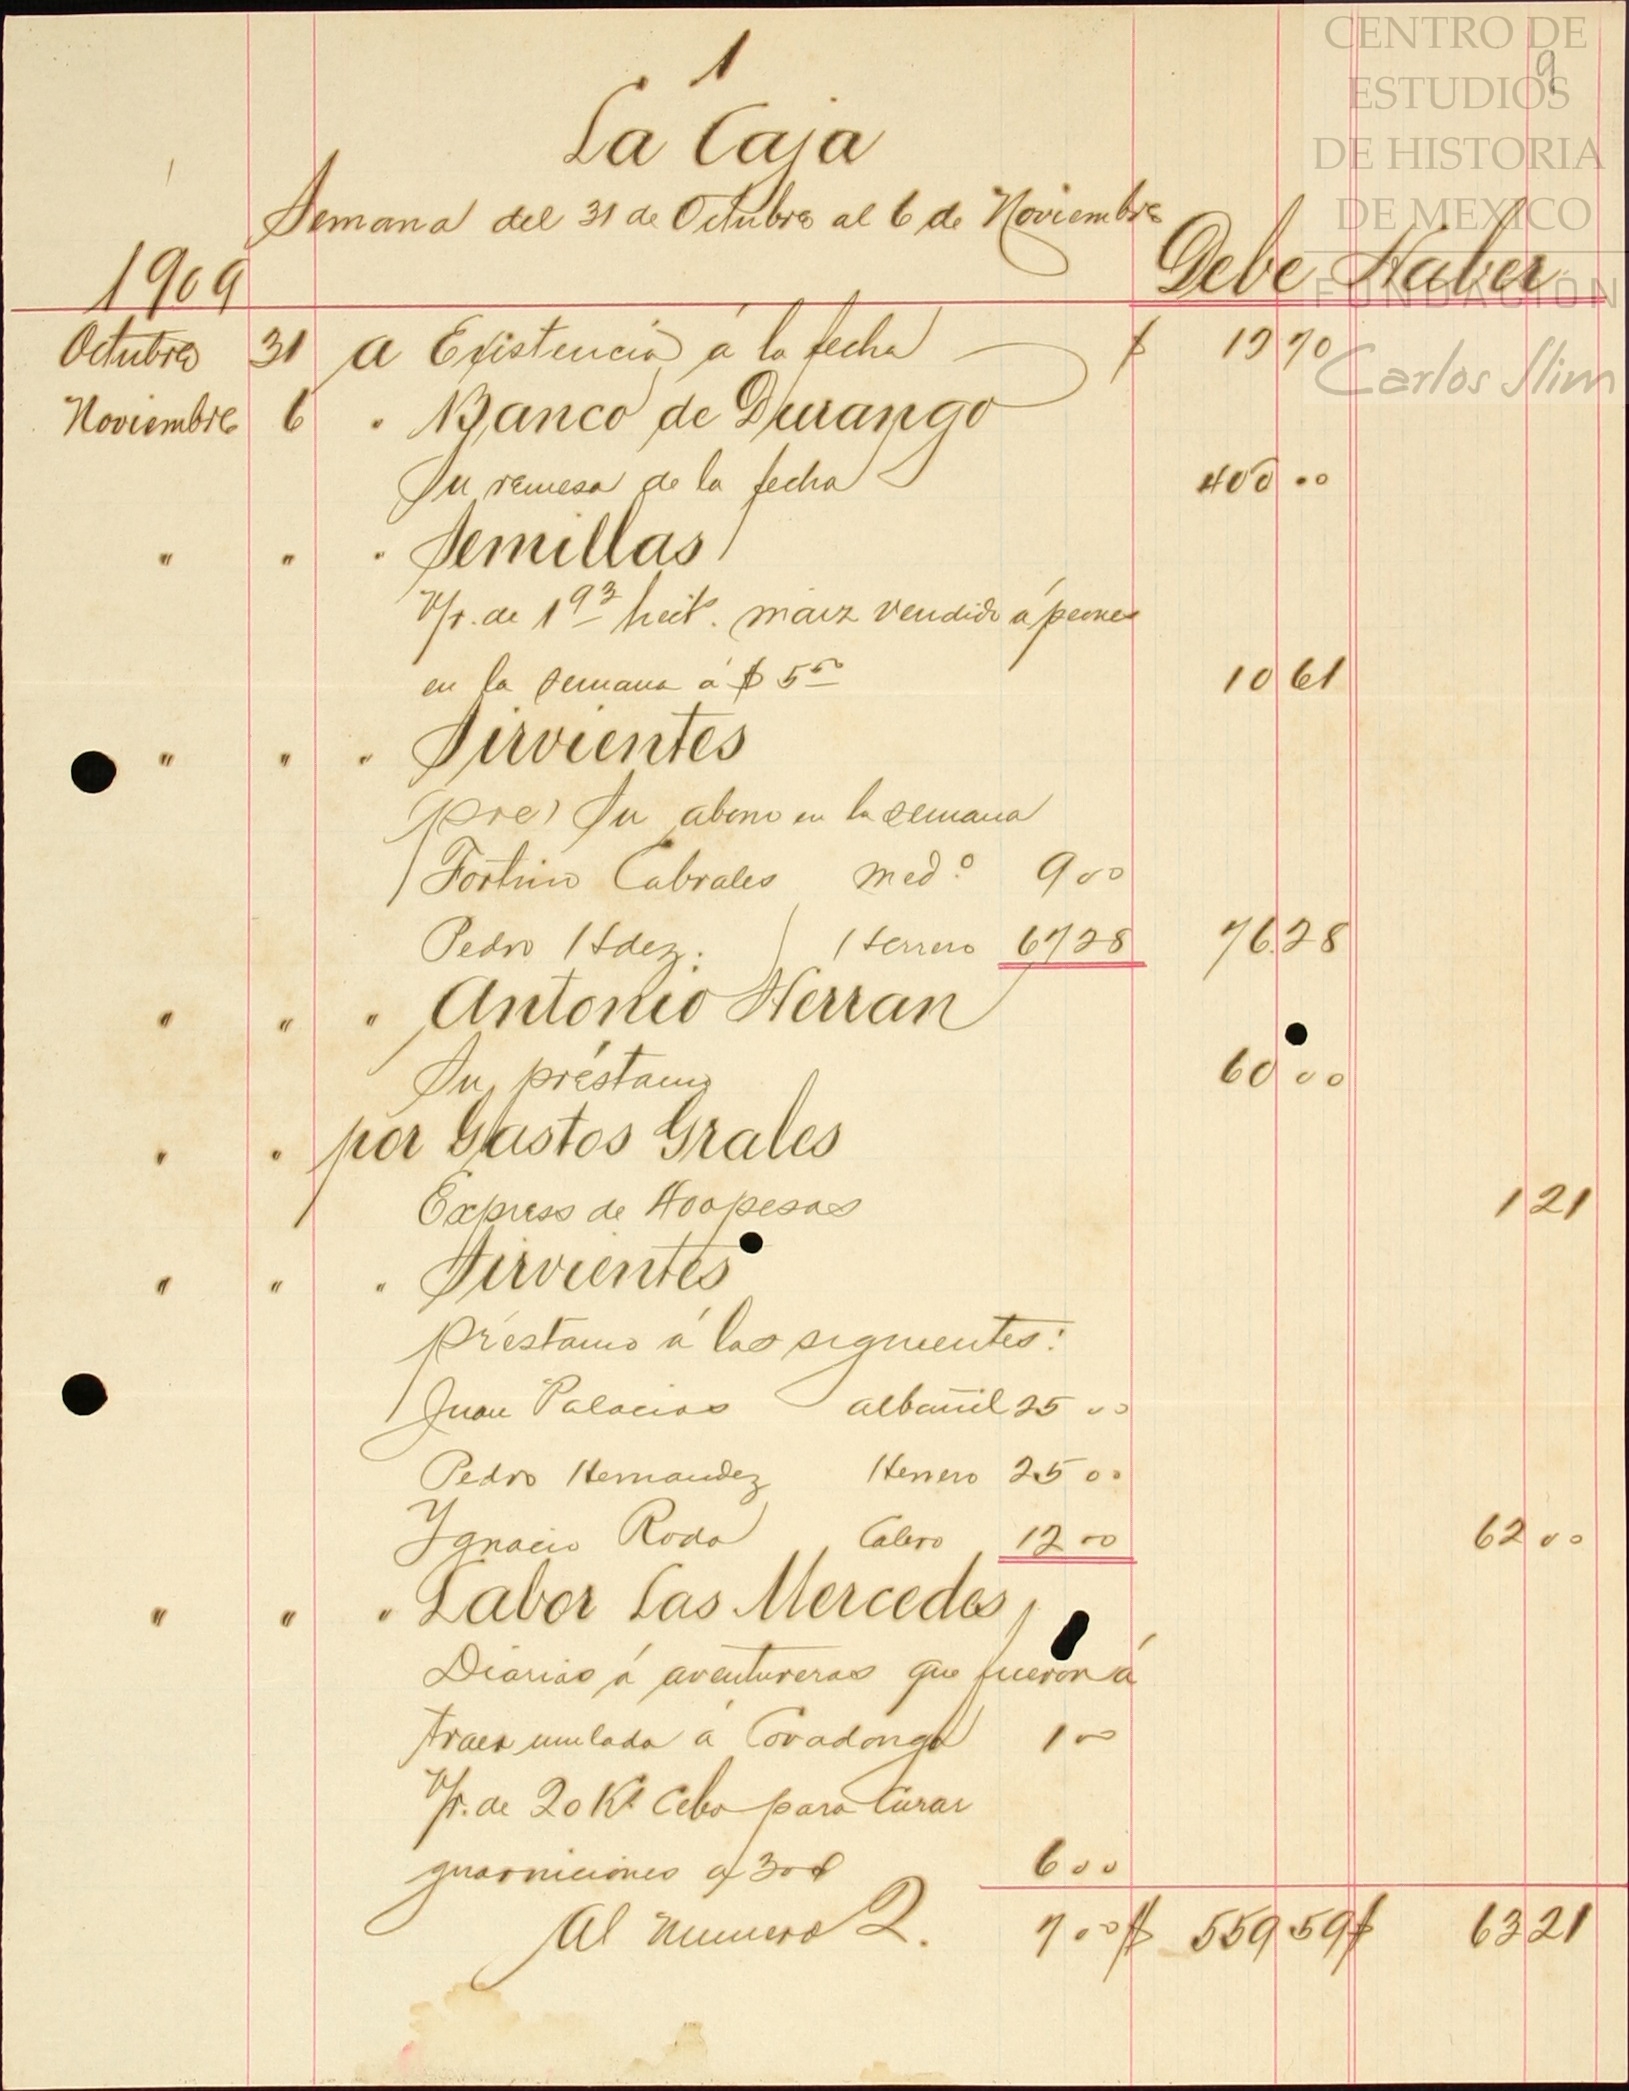 1
9
La Caja
Semana del 31 de Octubre al 6 de Noviembre
1909 Debe Haber
Octubre 31 a Existencia á la fecha $ 12 70
Noviembre 6 " Banco de Durango
Su remesa de la fecha 400 00
" " " Semillas
V/r. de 1 93 hect. maiz vendido á peones
en la semana á $ 5 50 10 61
" " " Sirvientes
(pre) Su abono en la semana
Fortino Cabrales med.º 9 00
Pedro Hdez. Herrero 67 28 76 28
" " " Antonio Herran
Su préstamo 60 00
" " por Gastos Grales
Express de 400 pesos 1 21
" " " Sirvientes
préstamo á los siguientes:
Juan Palacios albañil 25 00
Pedro Hernandez Herrero 25 00
Ygnacio Roda Calero 12 00 62 00
" " " Labor Las Mercedes
Diarios á aventureros que fueron á
traer mulada á Covadonga 1 00
V/r. de 20 Ks Cebo para Curar
guarniciones a/ 30¢ 6 00
Al numero 2. 7 00 $ 559 59 $ 63 21
CENTRO DE
ESTUDIOS
DE HISTORIA
DE MEXICO
FUNDACIÓN
Carlos Slim